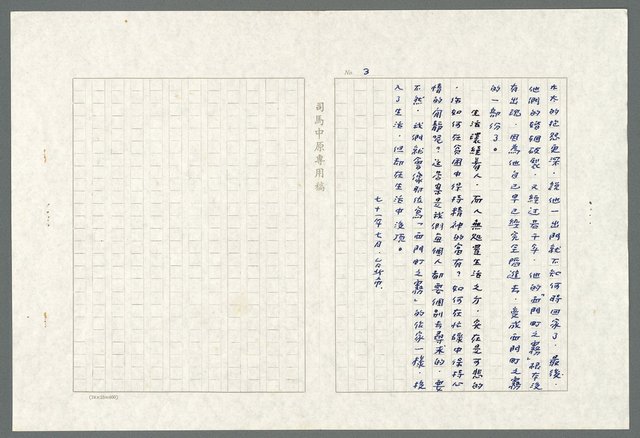 No. 3
太太的抱怨更深，說他一出門就不知何時回家了，最後，
他們的婚姻破裂，又經過若干年，他的“西門町之霧”根本沒
有出現，因為他自己早已經完全陷進去，變成西門町之霧
的一部份了。
生活讓經著人，而人無處置生活之方，實在是可悲的
，活如何在貧困中保持精神的富有？如何在忙碌中保持心
情的甯靜呢？這答案是我們每個人都要個別去尋求的，要
不然，我們就會像那位寫“西門町之霧”的作家一樣，捲
入了生活，但卻在生活中沒頂。
七十一年七月，台北市，
司馬中原專用稿
(24×25=600)